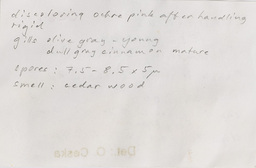 discoloring ochre pink after handling
rigid
gills olive gray - young
dull gray cinnamon mature
spores : 7.5 - 8.5 x 5 µ
smell : cedar wood